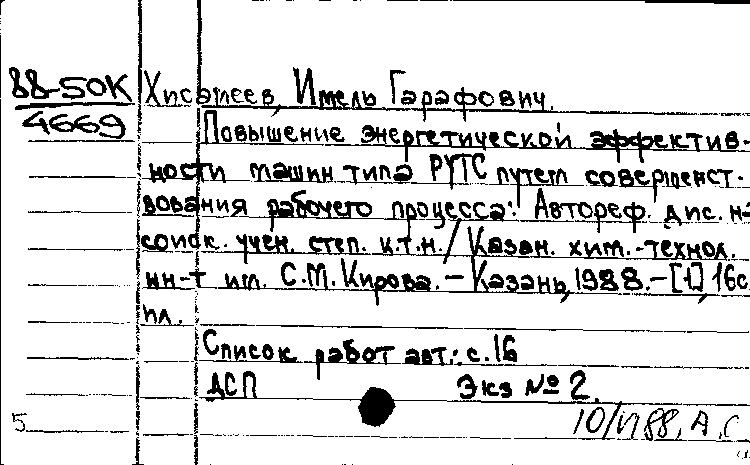 88-50К Хисамеев, Имель Гарафович.
4669 Повышение энергетической эффектив-
ности машин типа РУТС путем совершенст-
вования рабочего процесса: Автореф. дис. на
соиск. учен. степ. к.т.н. / Казан. хим.-технол.
ин-т им. С.М. Кирова. – Казань, 1988. – [1], 16с
ил.
Список работ авт.: с.16
ДСП Экз № 2.
5